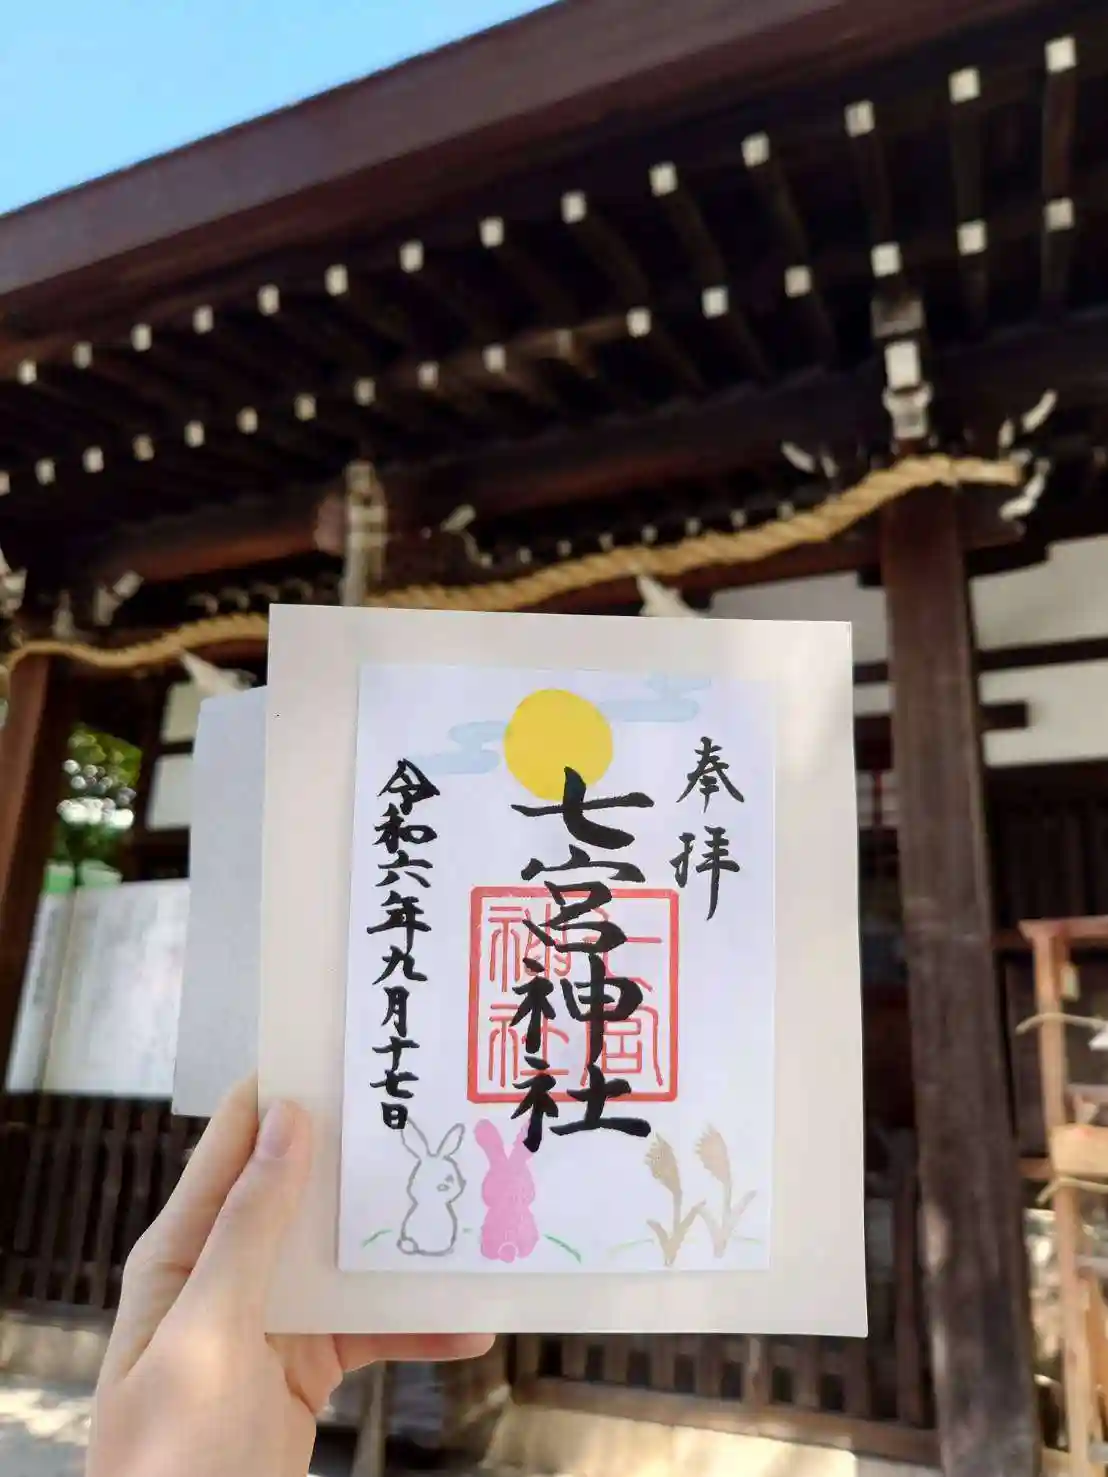 奉拝
七宮神社
七宮
神社
令和六年九月十七日